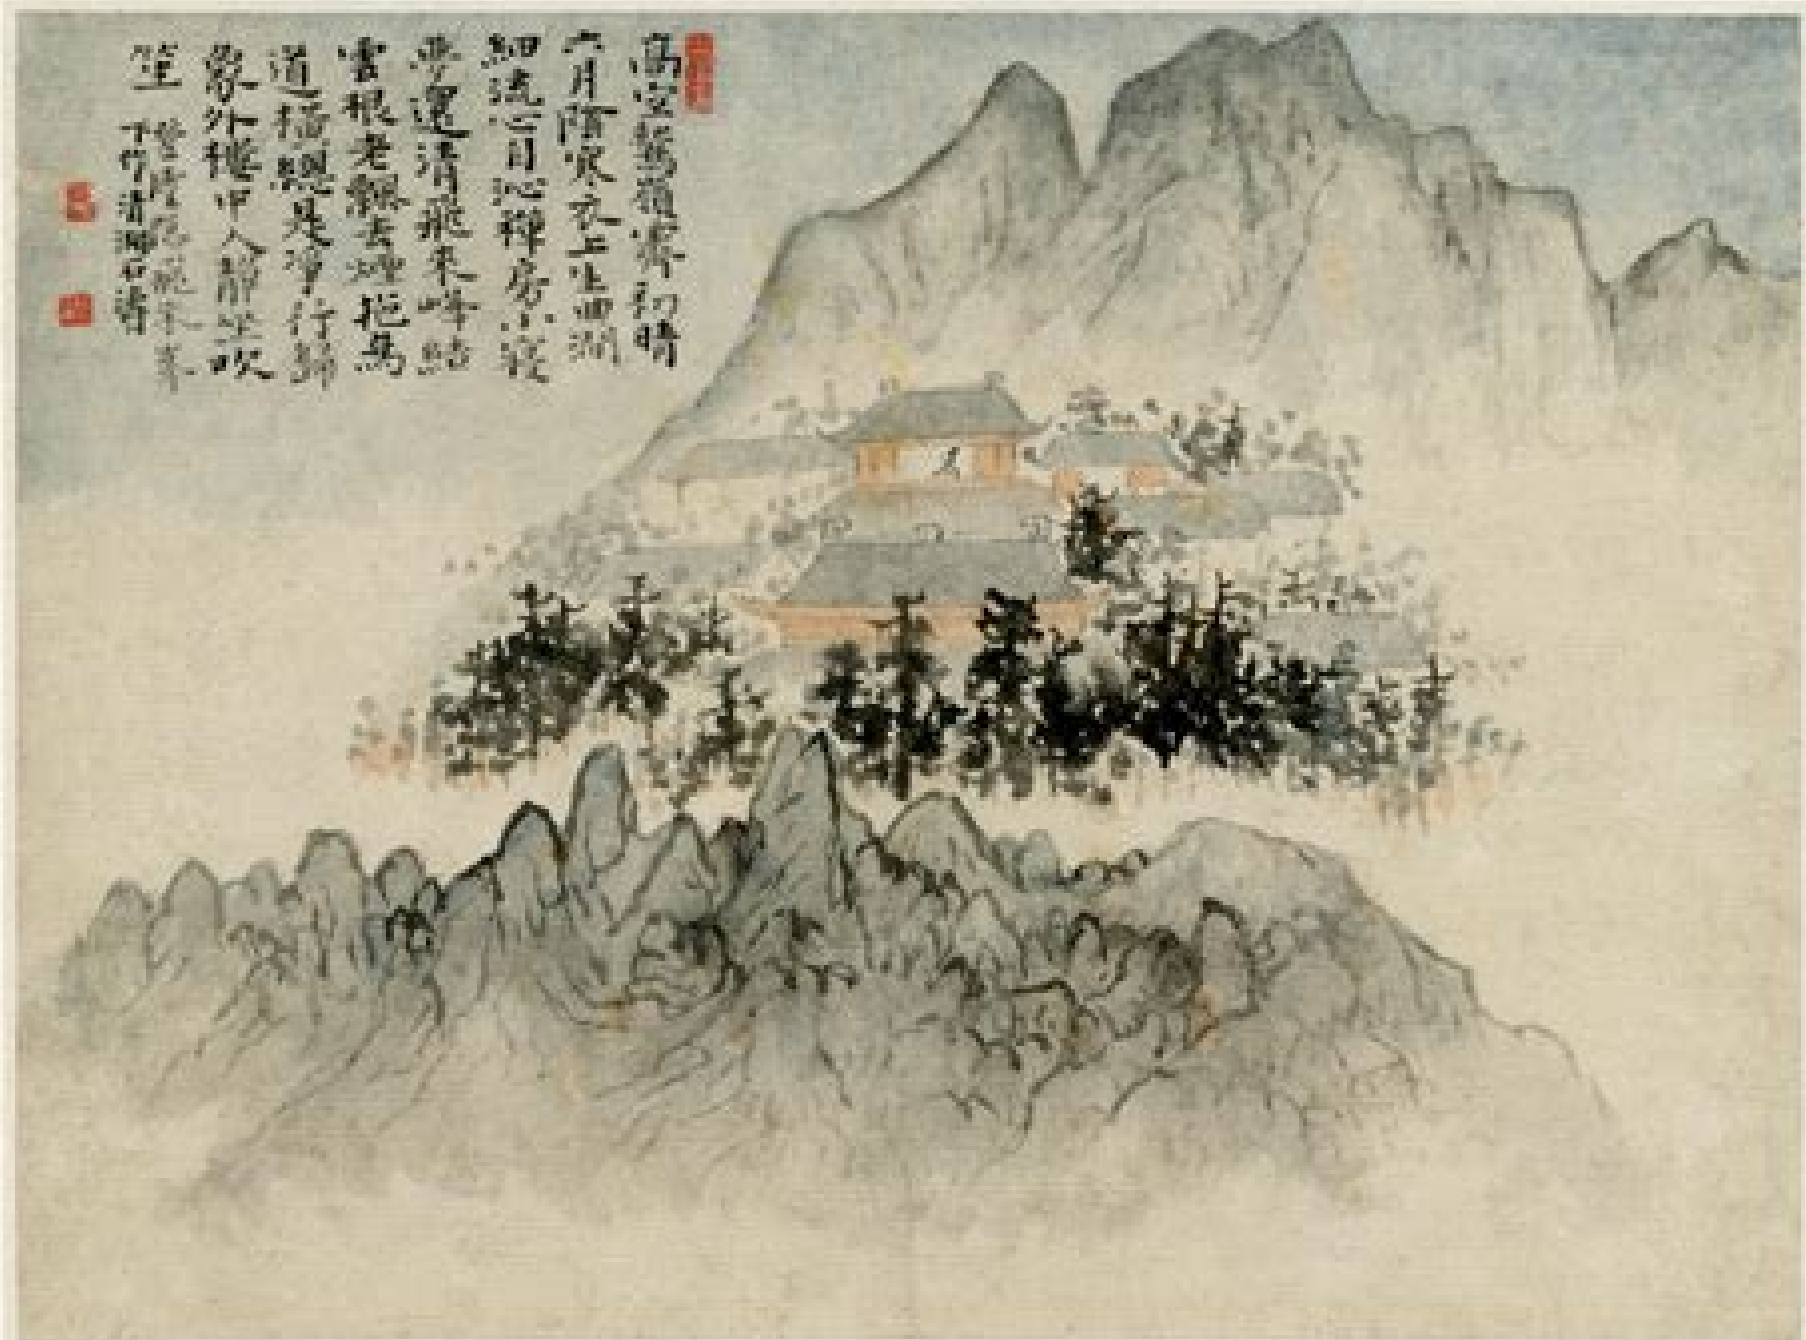 高空鷲嶺霽初晴
六月陰寒衣上生曲澗
細流心目沁禪房小寢
夢還清飛來峰結
雲根老飄去煙拖馬
道橫總是淨行歸
象外從中人靜坐吹
笙
下作清湘石濤